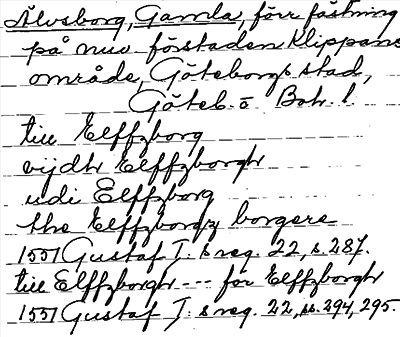 Älvsborg, Gamla, förr fästning
på nuv. förstaden Klippans
område, Göteborgs stad,
Göteb. o. Boh. l.
till Elffzborg
vijdh Elffzborgh
udi Elffzborg
the Elffzborgz borgere
1551 Gustaf I:s reg. 22, s. 287.
till Elffzborgh --- for Elffzborgh
1551 Gustaf I:s reg. 22, ss. 294, 295.